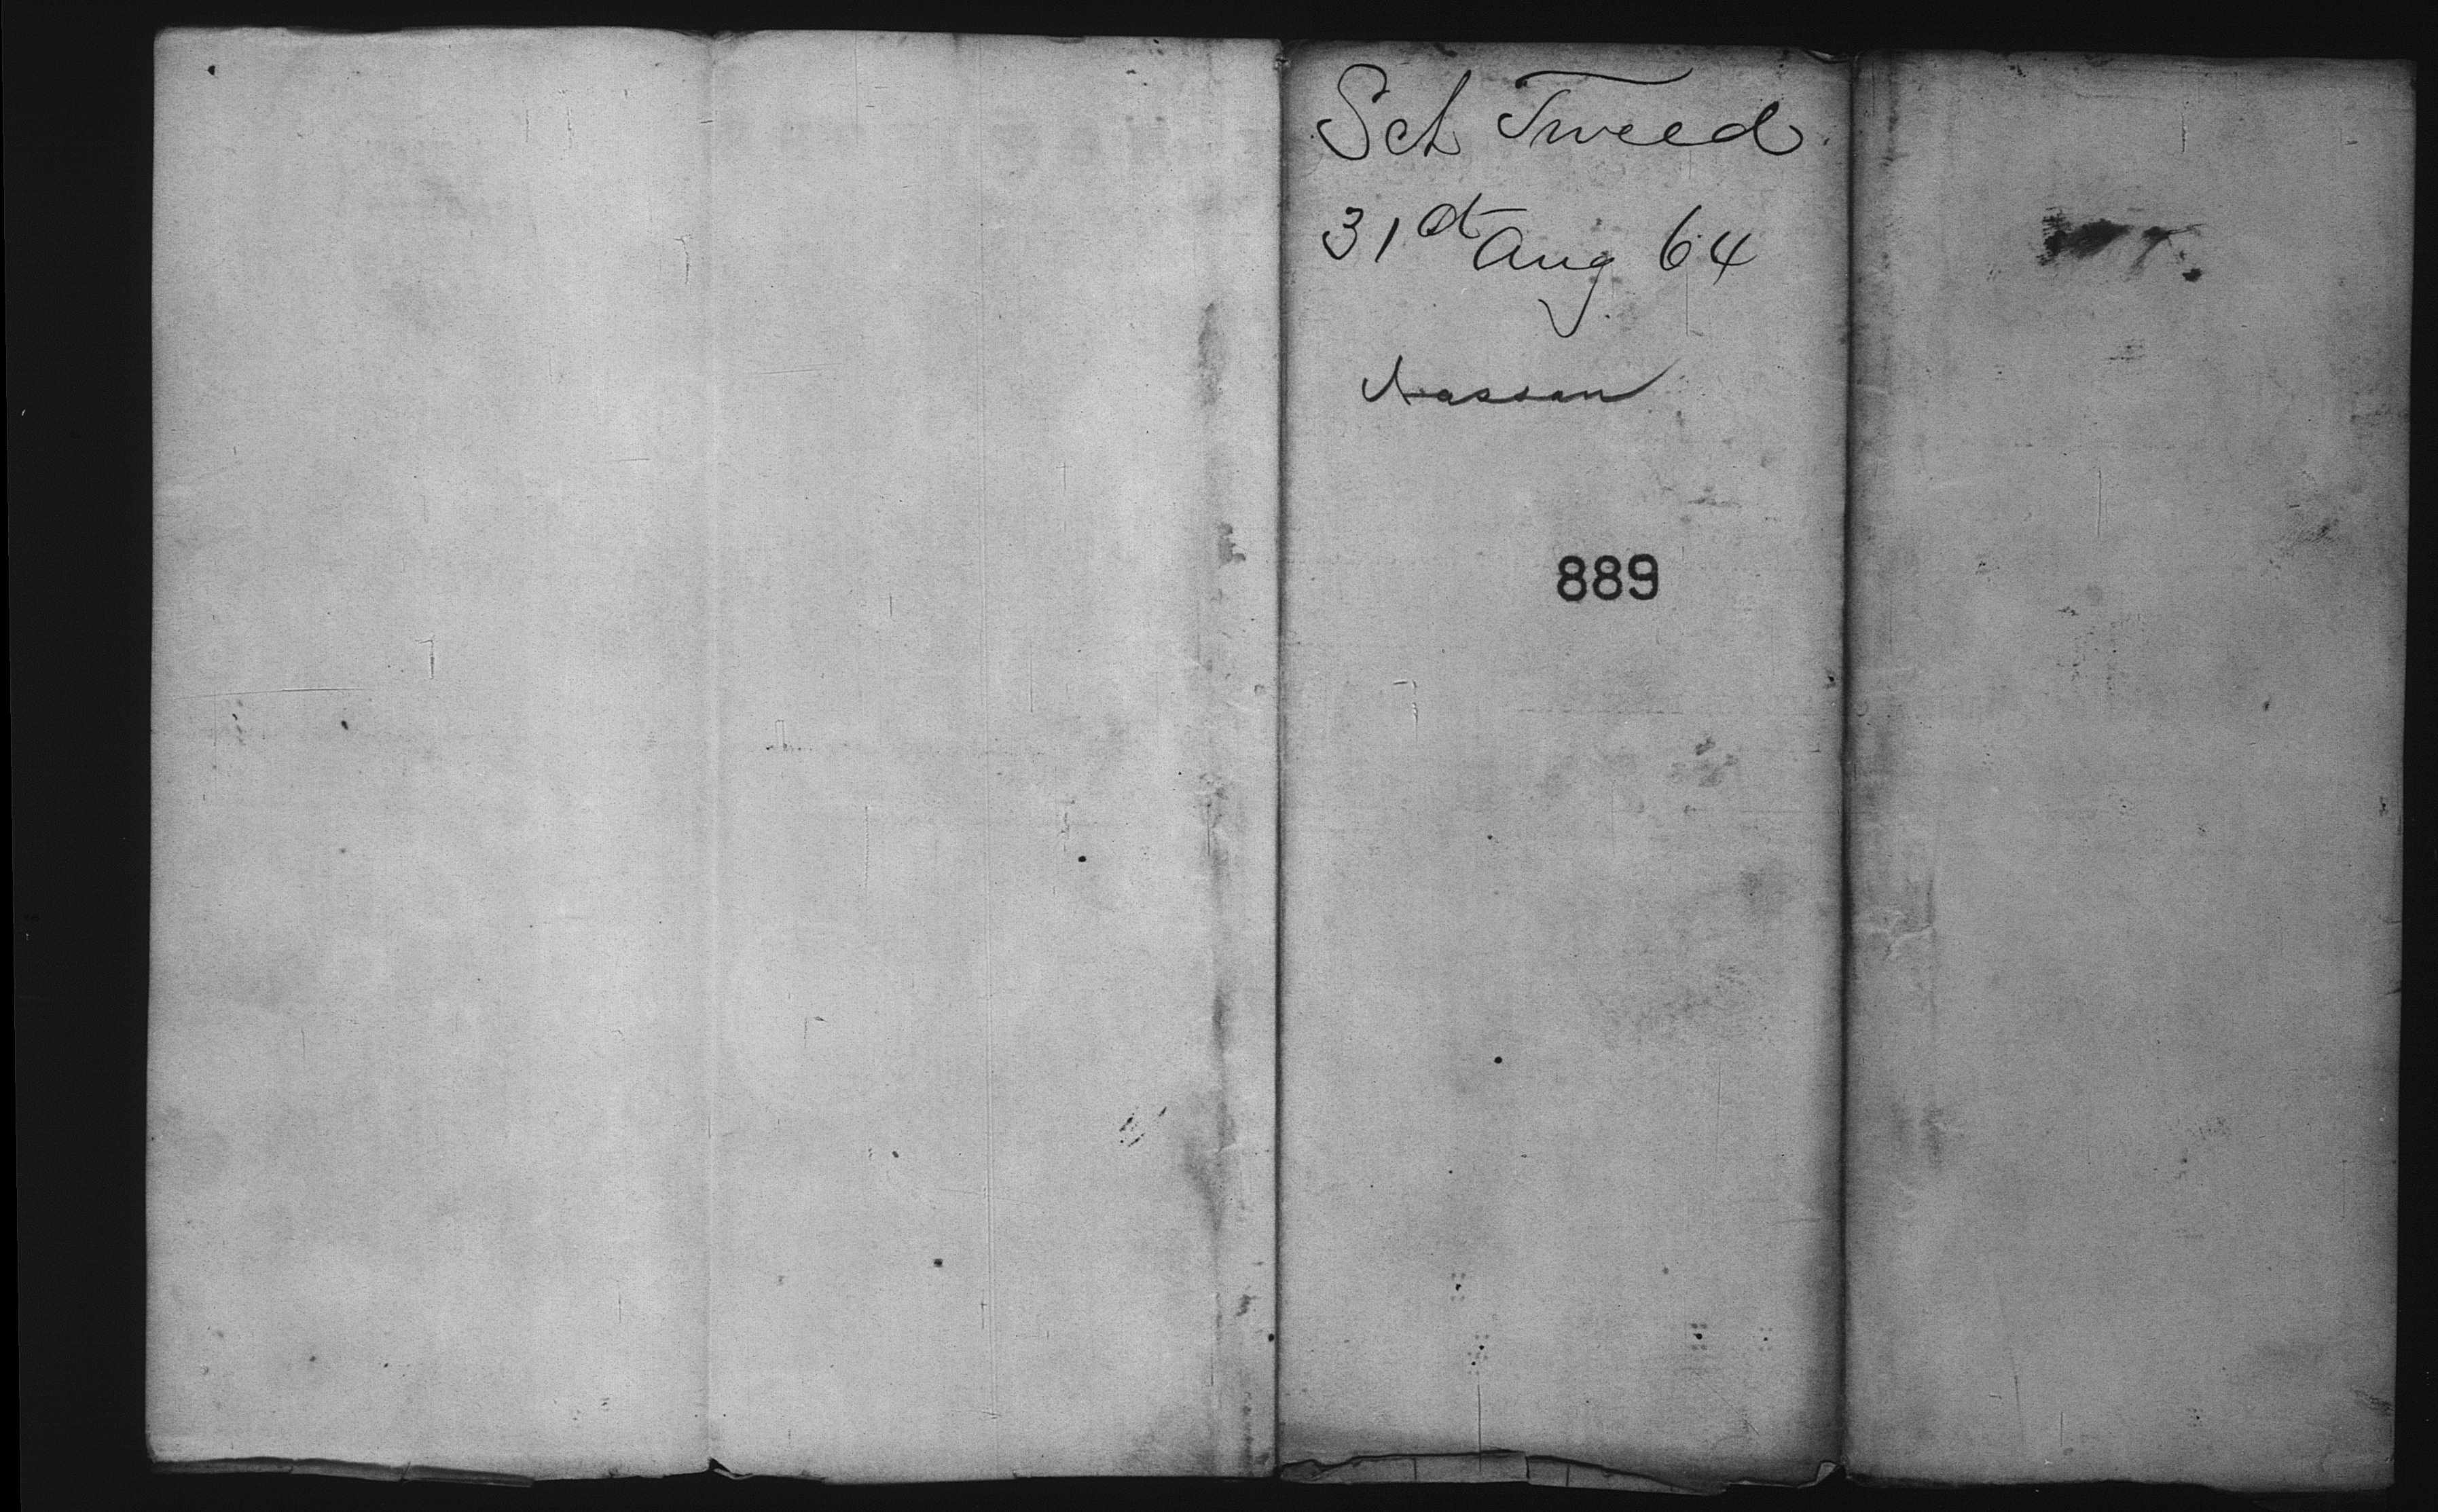 Sch Tweed
31st Aug 64
Nassau
889